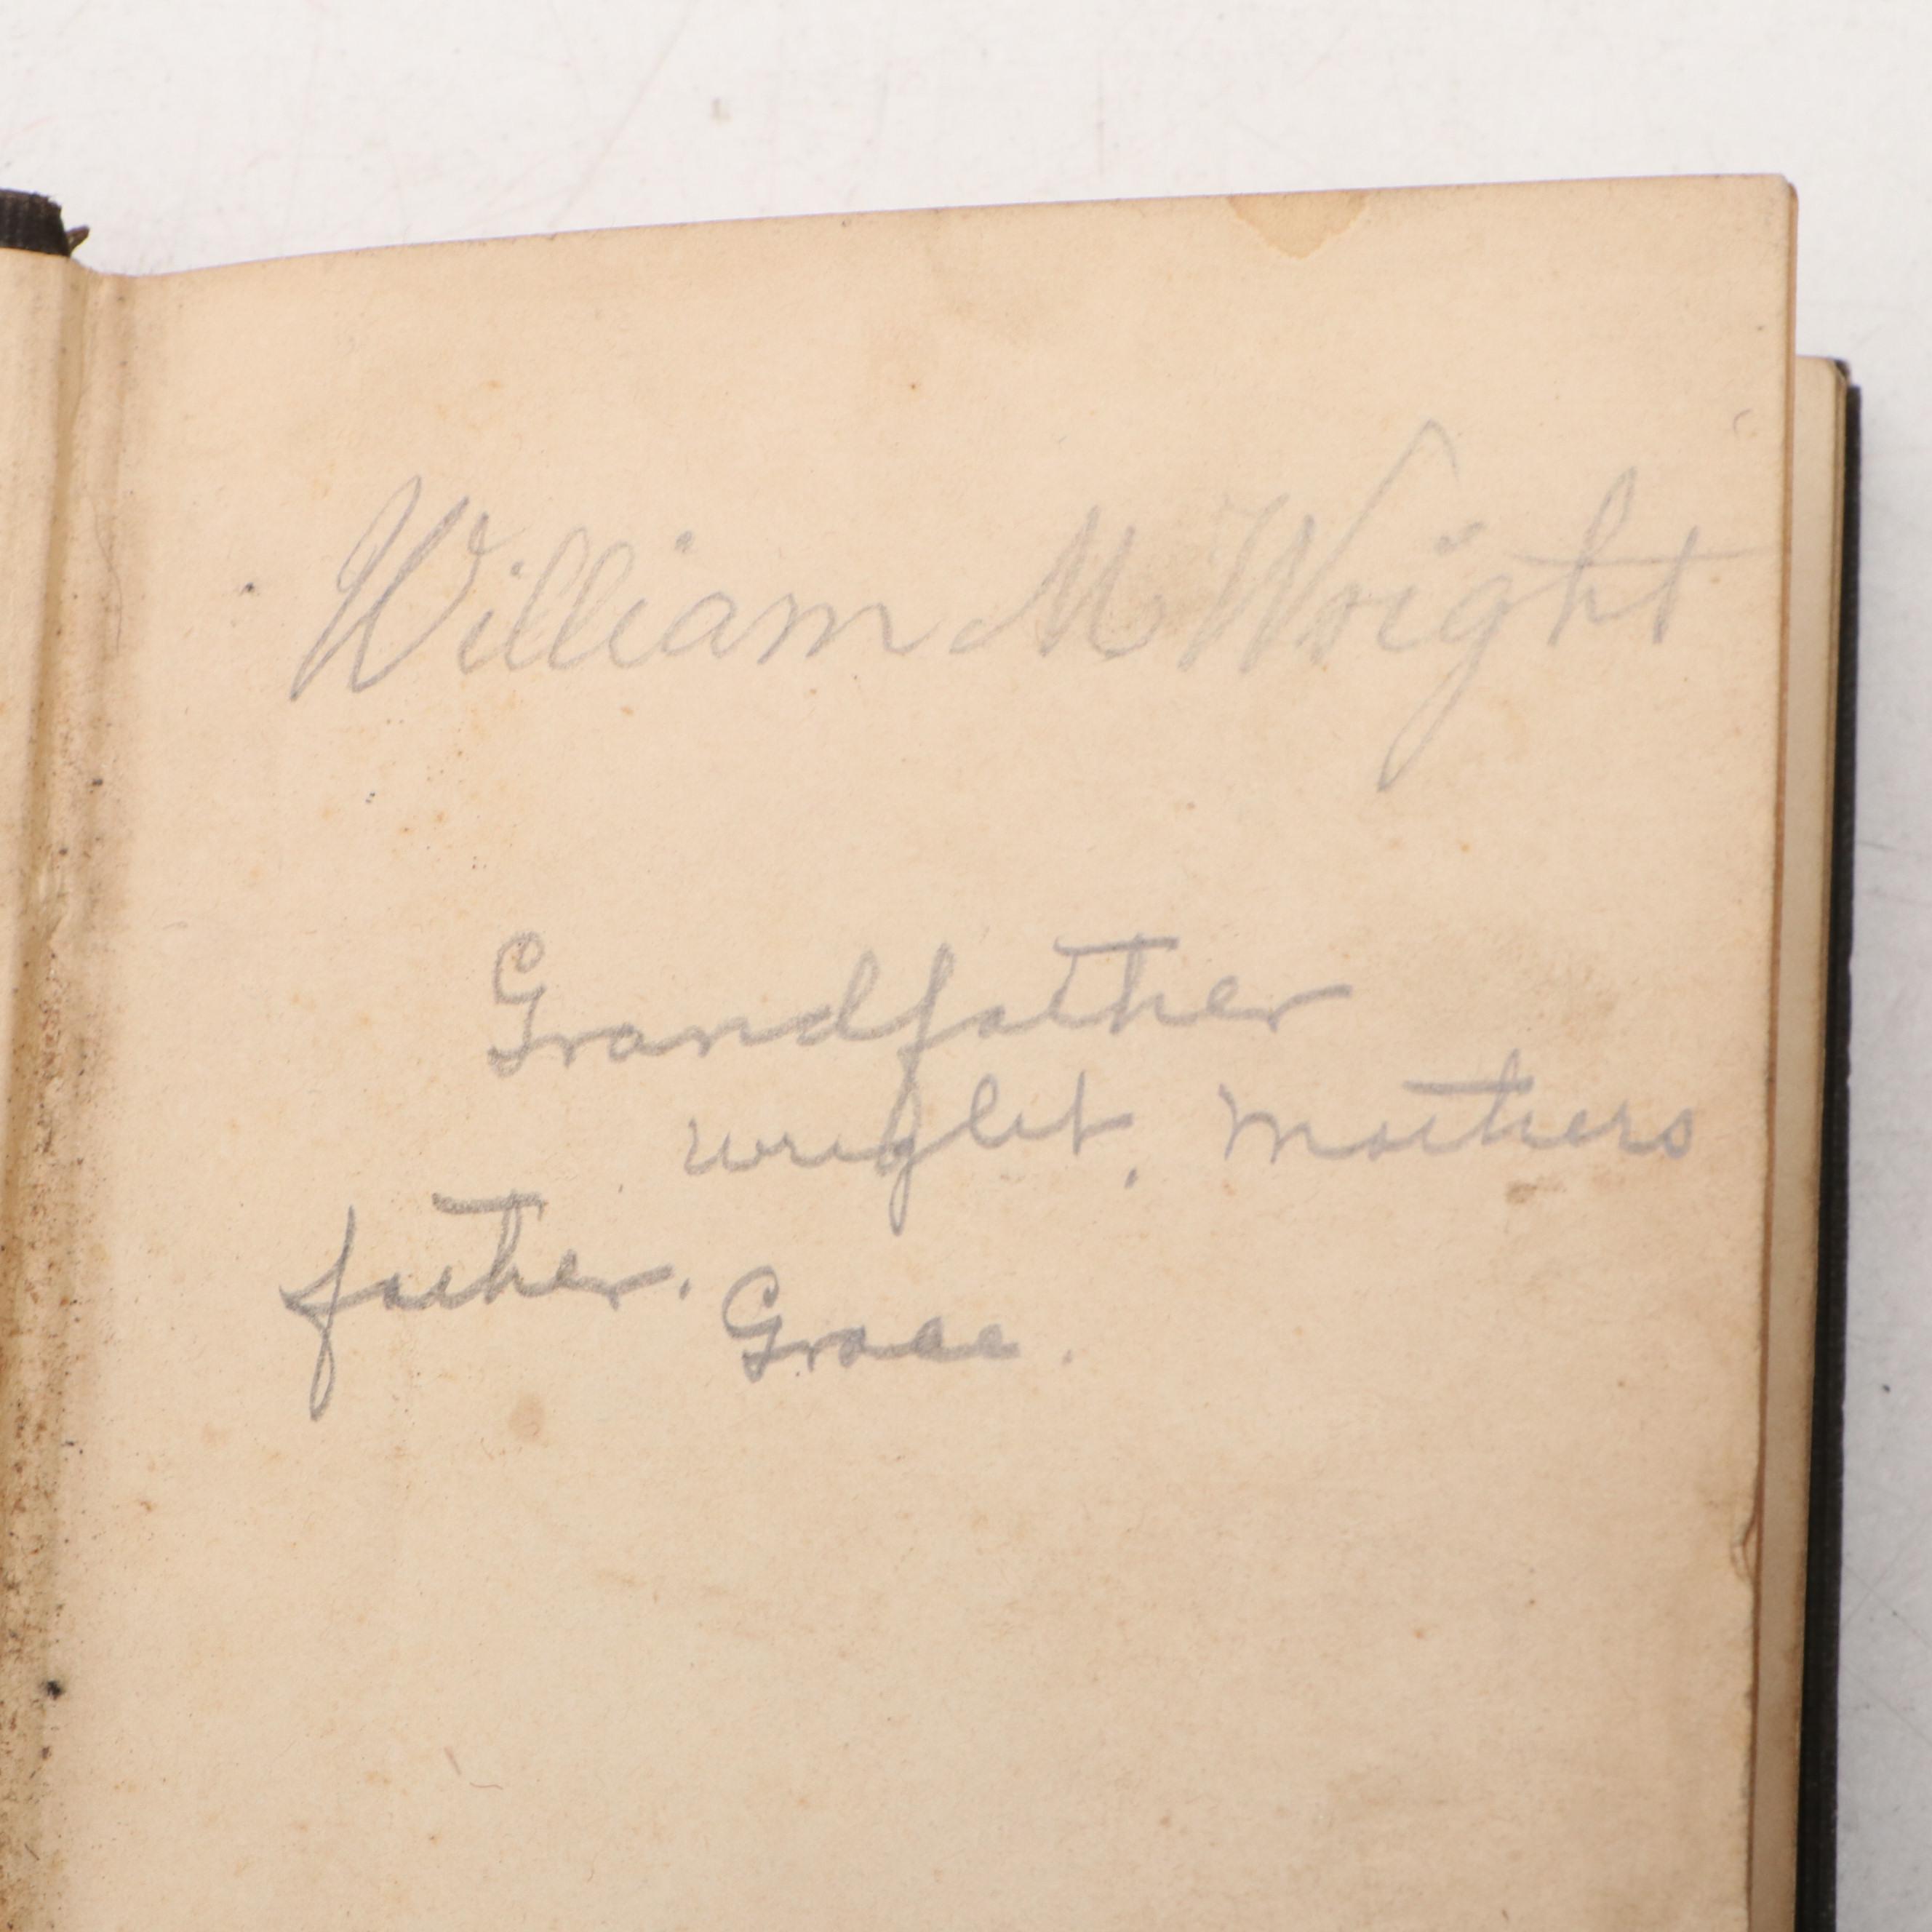 William M Wright
Grandfather
wright. Mothers
father.
Grace.